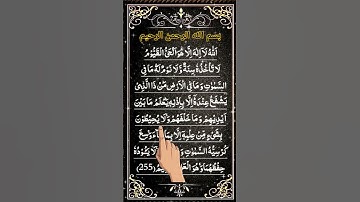 بسم الله الرحمن الرحيم
اَللّٰهُ لَآ اِلٰهَ اِلَّا هُوَ الْحَیُّ الْقَیُّوْمُ
لَا تَاْخُذُهٗ سِنَةٌ وَّلَا نَوْمٌ لَهٗ مَا فِی
السَّمٰوٰتِ وَمَا فِی الْاَرْضِ مَنْ ذَا الَّذِیْ
یَشْفَعُ عِنْدَهٗٓ اِلَّا بِاِذْنِهٖ یَعْلَمُ مَا بَیْنَ
اَیْدِیْهِمْ وَمَا خَلْفَهُمْ وَلَا یُحِیْطُوْنَ
بِشَیْءٍ مِّنْ عِلْمِهٖٓ اِلَّا وَسِعَ
كُرْسِیُّهُ السَّمٰوٰتِ وَلَا یَئُوْدُهٗ
حِفْظُهُمَا وَهُوَ (255)